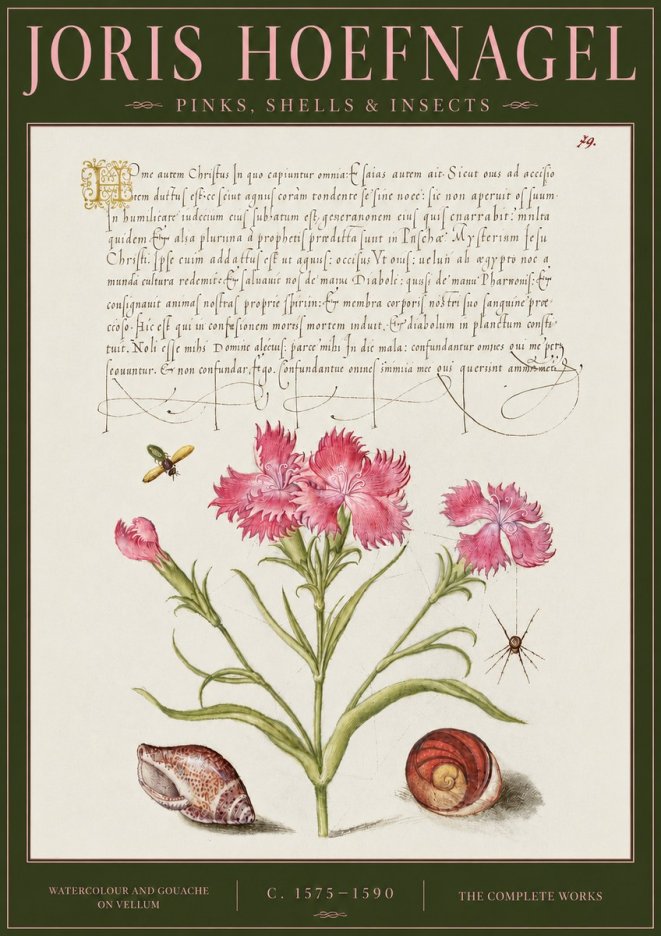 JORIS HOEFNAGEL
PINKS, SHELLS & INSECTS
79.
Home autem Christus In quo capiuntur omnia: Esaias autem ait. Sicut ouis ad occisio
tem ductus est: ce sciut agnus coràm tondente se sine noce: sic non aperuit os suum
In humilitate iudicium eius sublatum est, generanonem eius quis enarrabit: multa
quidem & alia plurima à prophetis prædicta sunt in Pascha Mysterium Iesu
Christi. Ipse cuim addattus est ut agnus: occisus Vt ouis: uelut ab ægypto noe a
munda cultura redemit: & saluauit nos de manu Diaboli: quasi de manu Pharaonis: &
consignauit animas nostras proprie spiritu: & membra corporis nostri suo sanguine pro
est qui in confesionem moris mortem induit. & diabolum in planctum consti
tuit. Noli esse mihi Domine parce mihi In die mala: confundantur omnes qui me per
& non confundar, Ego. Confundantue omnes mee ous
WATERCOLOUR AND GOUACHE
ON VELLUM
C. 1575–1590
THE COMPLETE WORKS